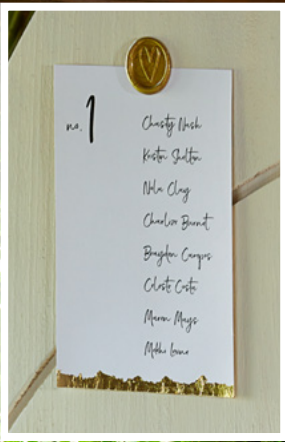 no. 1
Chasity Nash
Kristin Shelton
Nola Clay
Charlize Burnet
Brayden Campos
Celeste Costa
Maren Mays